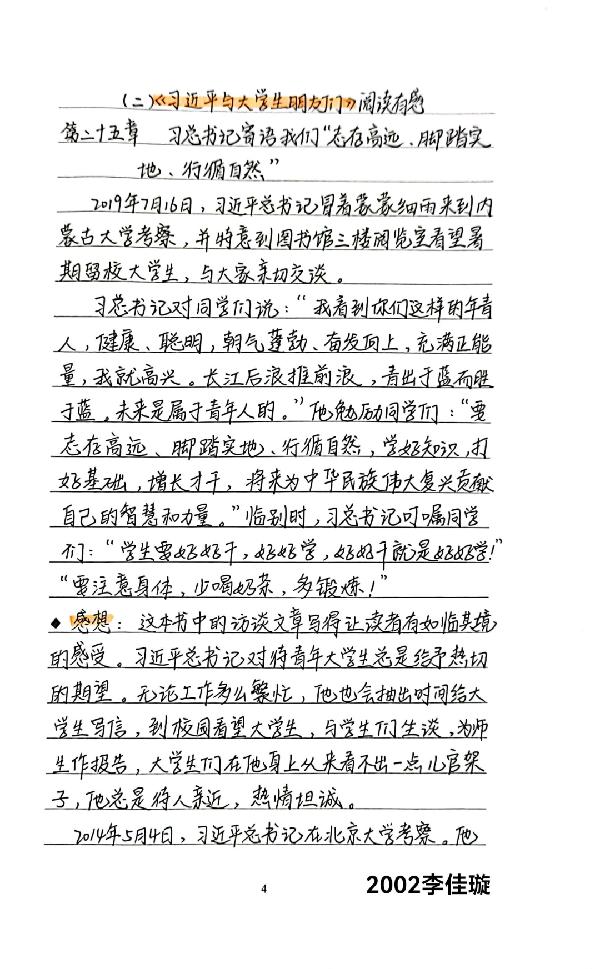 (二)《习近平与大学生朋友们》阅读有感
第二十五章 习总书记寄语我们“志存高远、脚踏实
地、行循自然”
2019年7月16日，习近平总书记冒着蒙蒙细雨来到内
蒙古大学考察，并特意到图书馆三楼阅览室看望暑
期留校大学生，与大家亲切交谈。
习总书记对同学们说：“我看到你们这样的年青
人，健康、聪明，朝气蓬勃、奋发向上，充满正能
量，我就高兴。长江后浪推前浪，青出于蓝而胜
于蓝。未来是属于青年人的。”他勉励同学们：“要
志存高远、脚踏实地、行循自然，学好知识，打
好基础，增长才干，将来为中华民族伟大复兴贡献
自己的智慧和力量。”临别时，习总书记叮嘱同学
们：“学生要好好干，好好学，好好干就是好好学！”
“要注意身体，少喝奶茶，多锻炼！”
◆ 感想：这本书中的访谈文章写得让读者有如临其境
的感受。习近平总书记对待青年大学生总是给予热切
的期望。无论工作多么繁忙，他也会抽出时间给大
学生写信，到校园看望大学生，与学生们座谈，为师
生作报告，大学生们在他身上从来看不出一点儿官架
子，他总是待人亲近，热情坦诚。
2014年5月4日，习近平总书记在北京大学考察。他
4
2002李佳璇